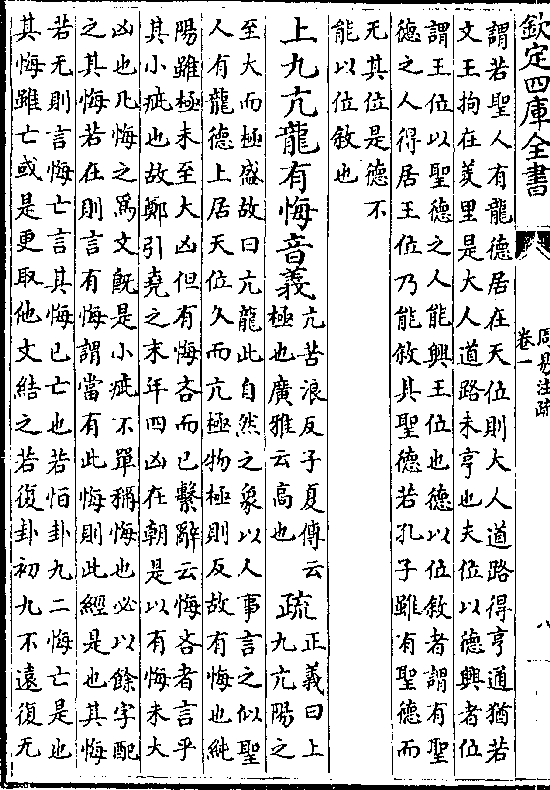 欽定四庫全書
周易注疏
卷一
八
謂若聖人有龍德居在天位則大人道路得亨通猶若
文王拘在羑里是大人道路未亨也夫位以德興者位
謂王位以聖德之人能興王位也德以位敘者謂有聖
德之人得居王位乃能敘其聖德若孔子雖有聖德而
无其位是德不
能以位敘也
上九亢龍有悔音義
亢苦浪反子夏傳云
極也廣雅云高也
疏
正義曰上
九亢陽之
至大而極盛故曰亢龍此自然之象以人事言之似聖
人有龍德上居天位久而亢極物極則反故有悔也純
陽雖極未至大凶但有悔吝而已繫辭云悔吝者言乎
其小疵也故鄭引堯之末年四凶在朝是以有悔未大
凶也凡悔之為文既是小疵不單稱悔也必以餘字配
之其悔若在則言有悔謂當有此悔則此經是也其悔
若无則言悔亡言其悔已亡也若恒卦九二悔亡是也
其悔雖亡或是更取他文結之若復卦初九不遠復无